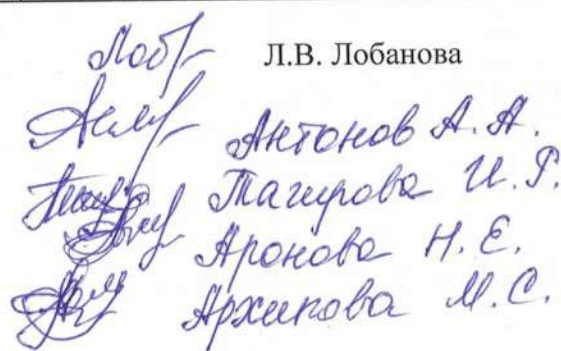 Л.В. Лобанова
Антонов А. А.
Тагирова И. Р.
Аронова Н. Е.
Архипова М. С.